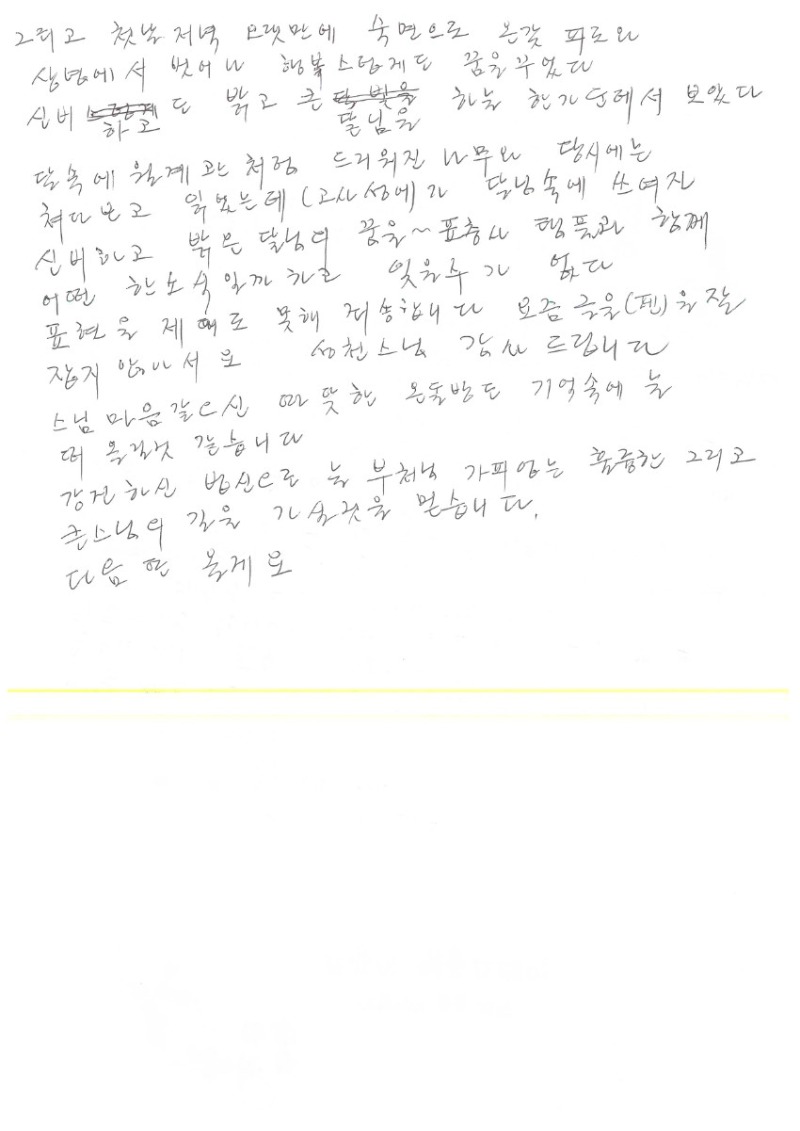 그리고 첫날저녁 오랫만에 숙면으로 온갖 피로와
상념에서 벗어나 행복스럽게도 꿈을꾸었다
신비하고도 밝고 큰 달님을 하늘 한가운데서 보았다
달속에 월계관처럼 드리워진 나무와 당시에는
쳐다보고 읽었는데 (고사성에)가 달님속에 쓰여진
신비하고 밝은달님의 꿈을~표충사 템플과 함께
어떤 한소식일까하고 잊을수가 없다
표현을 제대로 못해 죄송합니다 요즘 글을(펜)을잘
잡지 않아서요 성천스님 감사 드립니다
스님마음같으신 따뜻한 온돌방도 기억속에 늘
떠올릴것 같습니다
강건하신 법신으로 늘 부처님 가피얻는 훌륭한 그리고
큰스님의 길을 가실것을 믿습니다.
다음 또 올게요